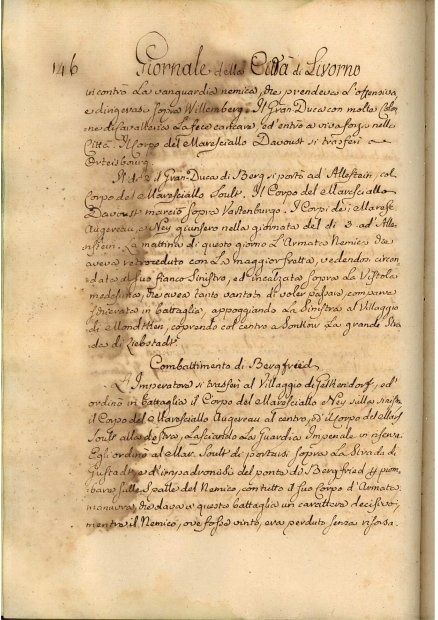 146 Giornale della Città di Livorno
incontrò la vanguardia nemica, che prendeva l'offensiva,
e dirigevasi sopra Willemberg. Il Gran Duca con molte Colon
ne di Cavalleria la fece caricare, ed entrò a viva forza nella
Città. Il Corpo del Maresciallo Davoust si trasferì a
Orteisbourg.
Il dì 2 il Gran Duca di Berg si portò ad Allestein, col
Corpo del Maresciallo Soult. Il Corpo del Maresciallo
Davoust marciò sopra Vastenburgo. I Corpi dei Maresc.
Augereau, e Ney giunsero nella giornata del dì 3 ad Alle
stein. La mattina di questo giorno l'Armata Nemica che
aveva retroceduto con la maggior fretta, vedendosi circon
data al suo fianco Sinistro, ed incalzata sopra la Vistola
medesima, che avea tanto vantato di voler passare, comparve
schierata in battaglia, appoggiando la Sinistra al Villaggio
di Mondtken, coprendo col centro a Jonkow la grande Stra
da di Liebstadt.
Combattimento di Bergfried
L'Imperatore si trasferì al Villaggio di Getkendorff, ed
ordinò in battaglia il Corpo del Maresciallo Ney sulla sinistra
il Corpo del Maresciallo Augereau al centro, ed il corpo del Mars
Soult alla destra, lasciando la Guardia Imperiale in riserva.
Egli ordinò al Mar. Soult di portarsi sopra la Strada di
Gustadt, e d'impadronirsi del ponte di Bergfried per piom
bare sulle Spalle del Nemico, con tutto il suo Corpo d'Armata
manovra, che dava a questa battaglia un carattere decisivo;
mentre il Nemico, ove fosse vinto, era perduto senza risorsa.